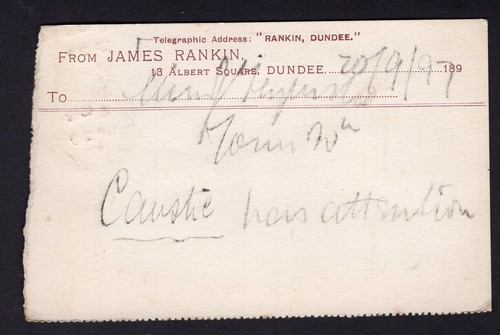 Telegraphic Address: "RANKIN, DUNDEE."
FROM JAMES RANKIN,
13 ALBERT SQUARE, DUNDEE, 20/9/97 189
To
Caustic has attention